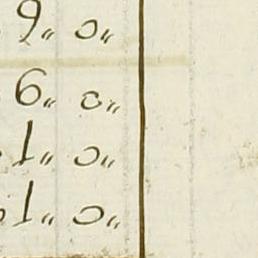 9〃 0〃
6〃 0〃
1〃 0〃
1〃 0〃